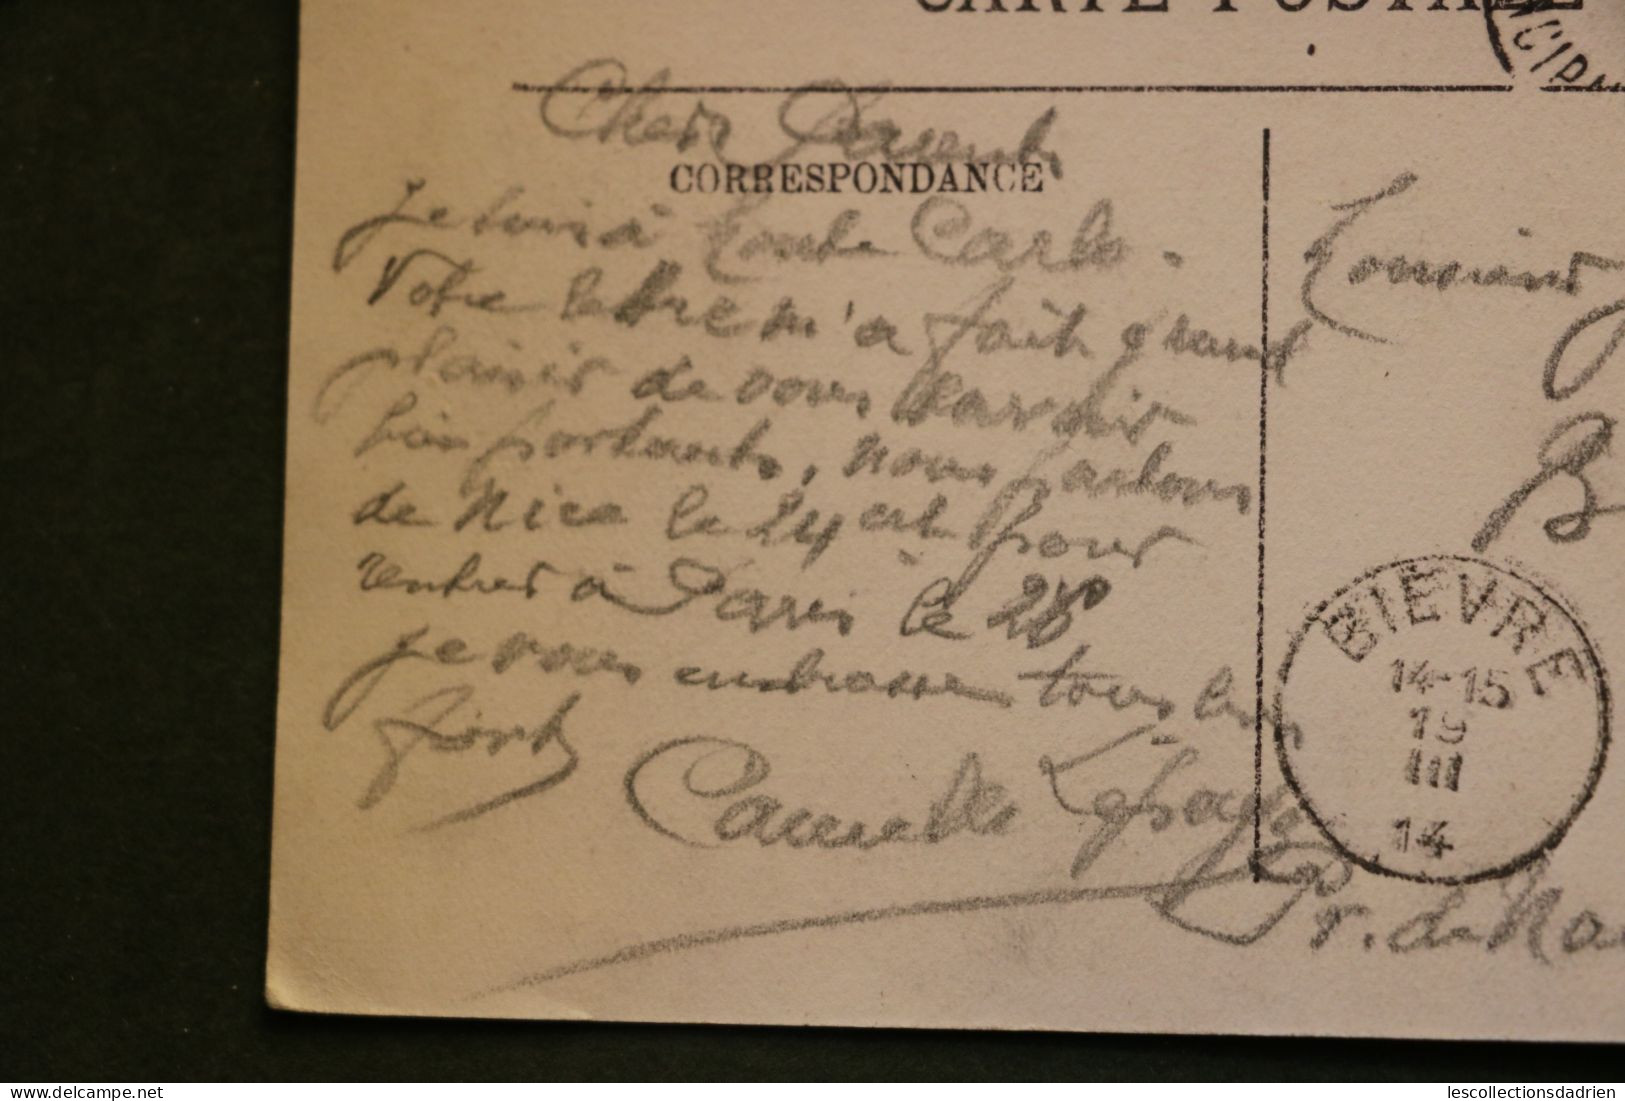 CARTE POSTALE
NCIPA
Chers Parents
CORRESPONDANCE
Je suis à Monte Carlo.
Votre lettre m'a fait grand
plaisir de vous savoir
bien portants, nous partons
de Nice le 24 et pour
rentrer à Paris le 28
Je vous embrasse tous bien
fort
Camille Lepage
Monsieur J
B
BIEVRE
14-15
19
III
14
Pr. de Na
lescollectionsdadrien